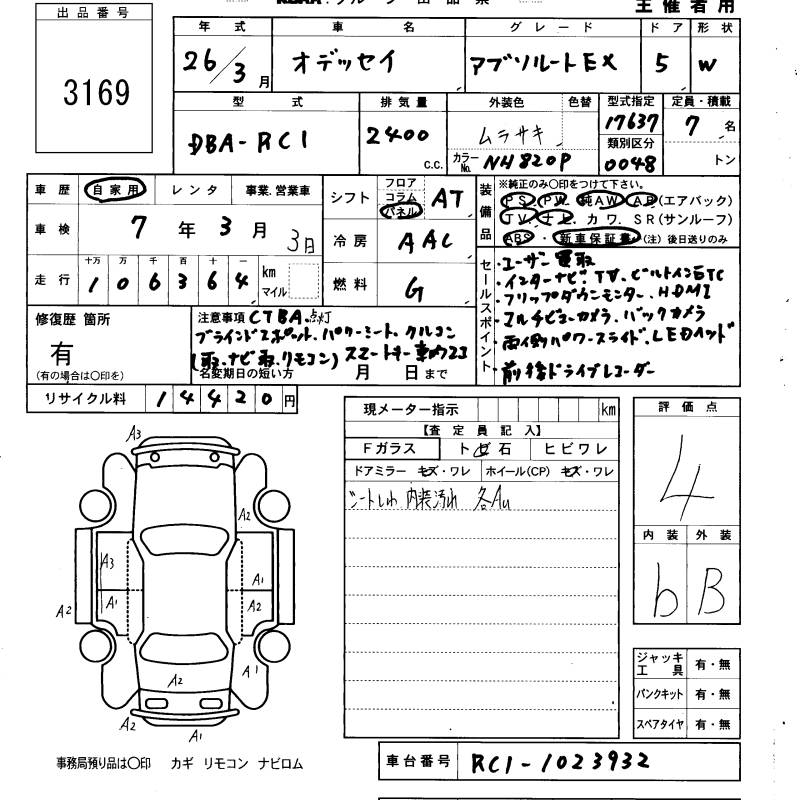 主催者用
出品番号
3169
年式 車名 グレード ドア 形状
26/3月 オデッセイ アブソルートEX 5 W
型式 排気量 外装色 色替 型式指定 定員・積載
DBA-RC1 2400 c.c. ムラサキ 17637 7名
類別区分
カラーNo. NH820P 0048 トン
車歴 自家用 レンタ 事業.営業車
車検 7年3月 3日
走行 十万 万 千 百 十 一
1 0 6 3 6 4 km マイル
シフト フロア コラム パネル AT
冷房 AAC
燃料 G
装備品 ※純正のみ〇印をつけて下さい。
PS. PW. 純AW. AB(エアバック)
TV. ナビ. カワ. SR(サンルーフ)
ABS・新車保証書(注)後日送りのみ
セールスポイント
・ユーザー買取
・インターナビ.TV.ビルトインETC
・フリップダウンモニター.HDMI
・マルチビューカメラ.バックカメラ
・両側パワースライド.LEDヘッド
・前後ドライブレコーダー
修復歴 箇所
有
(有の場合は〇印を)
注意事項 CTBA点灯
ブラインドスポット.パワーシート.クルコン
(取.ナビ取.リモコン)スマートキー車内23
名変期日の短い方 月 日まで
リサイクル料 14420円
現メーター指示 km
【査定員記入】
Fガラス トビ石 ヒビワレ
ドアミラー キズ・ワレ ホイール(CP) キズ・ワレ
シートしわ 内装汚れ 各AU
評価点
4
内装 外装
b B
A3
A2
A3
A1
A1
A2
A2
A1
A1
A2
A2
A1
ジャッキ工具 有・無
パンクキット 有・無
スペアタイヤ 有・無
事務局預り品は〇印 カギ リモコン ナビロム
車台番号 RC1-1023932